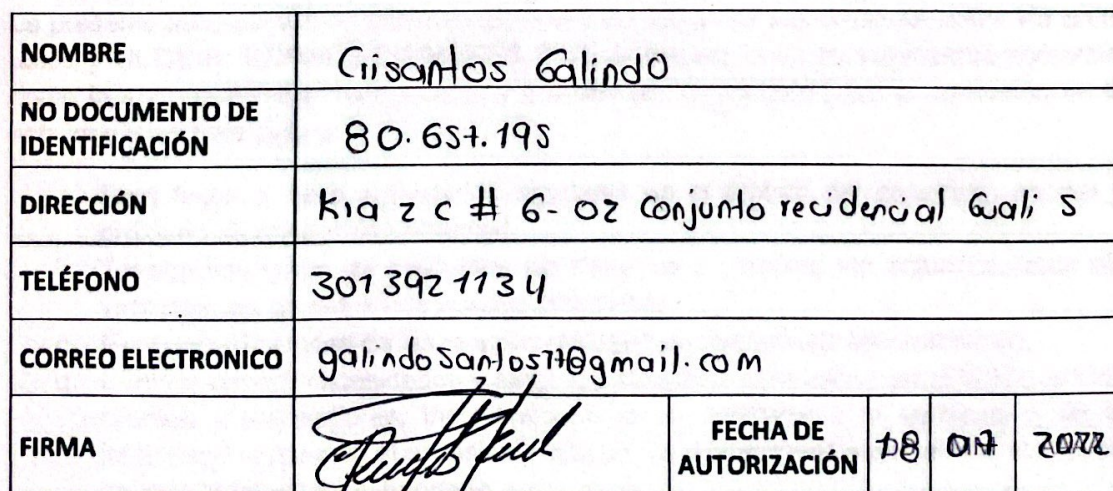 NOMBRE Crisantos Galindo
NO DOCUMENTO DE
IDENTIFICACIÓN 80.657.195
DIRECCIÓN Kra 2 c # 6-02 Conjunto recidencial Guali s
TELÉFONO 301 392 1134
CORREO ELECTRONICO galindosantos77@gmail.com
FIRMA
FECHA DE
AUTORIZACIÓN 08 2022